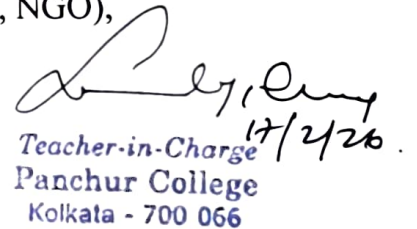 , NGO),
17/2/26.
Teacher-in-Charge
Panchur College
Kolkata - 700 066